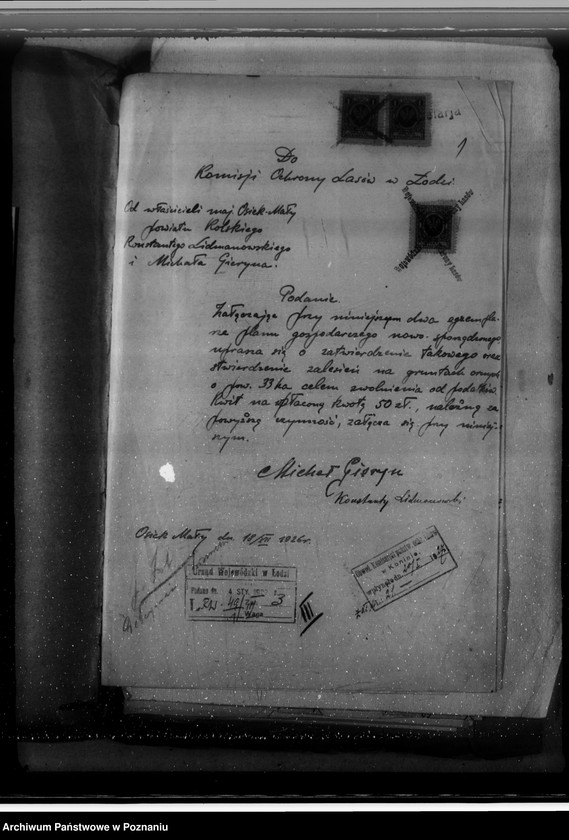 1
Do
Komisji Ochrony Lasów w Łodzi
Od właścicieli maj. Osiek-Mały
powiatu Kolskiego
Konstantego Lidmanowskiego
i Michała Gieryna.
Podanie
Załączając przy niniejszym dwa egzempla-
rze planu gospodarczego nowo-sporządzonego
uprasza się o zatwierdzenie takowego oraz
stwierdzenie zalesień na gruntach ornych
o pow. 33 ha celem zwolnienia od podatku.
Kwit na wpłaconą kwotę 50 zł., należną za
powyższą czynność, załącza się przy niniej-
szym.
Michał Gieryn
Konstanty Lidmanowski
Osiek Mały dn. 18/XII 1926 r.
Urząd Wojewódzki w Łodzi
4 STY.
3
III
w Koninie
Archiwum Państwowe w Poznaniu